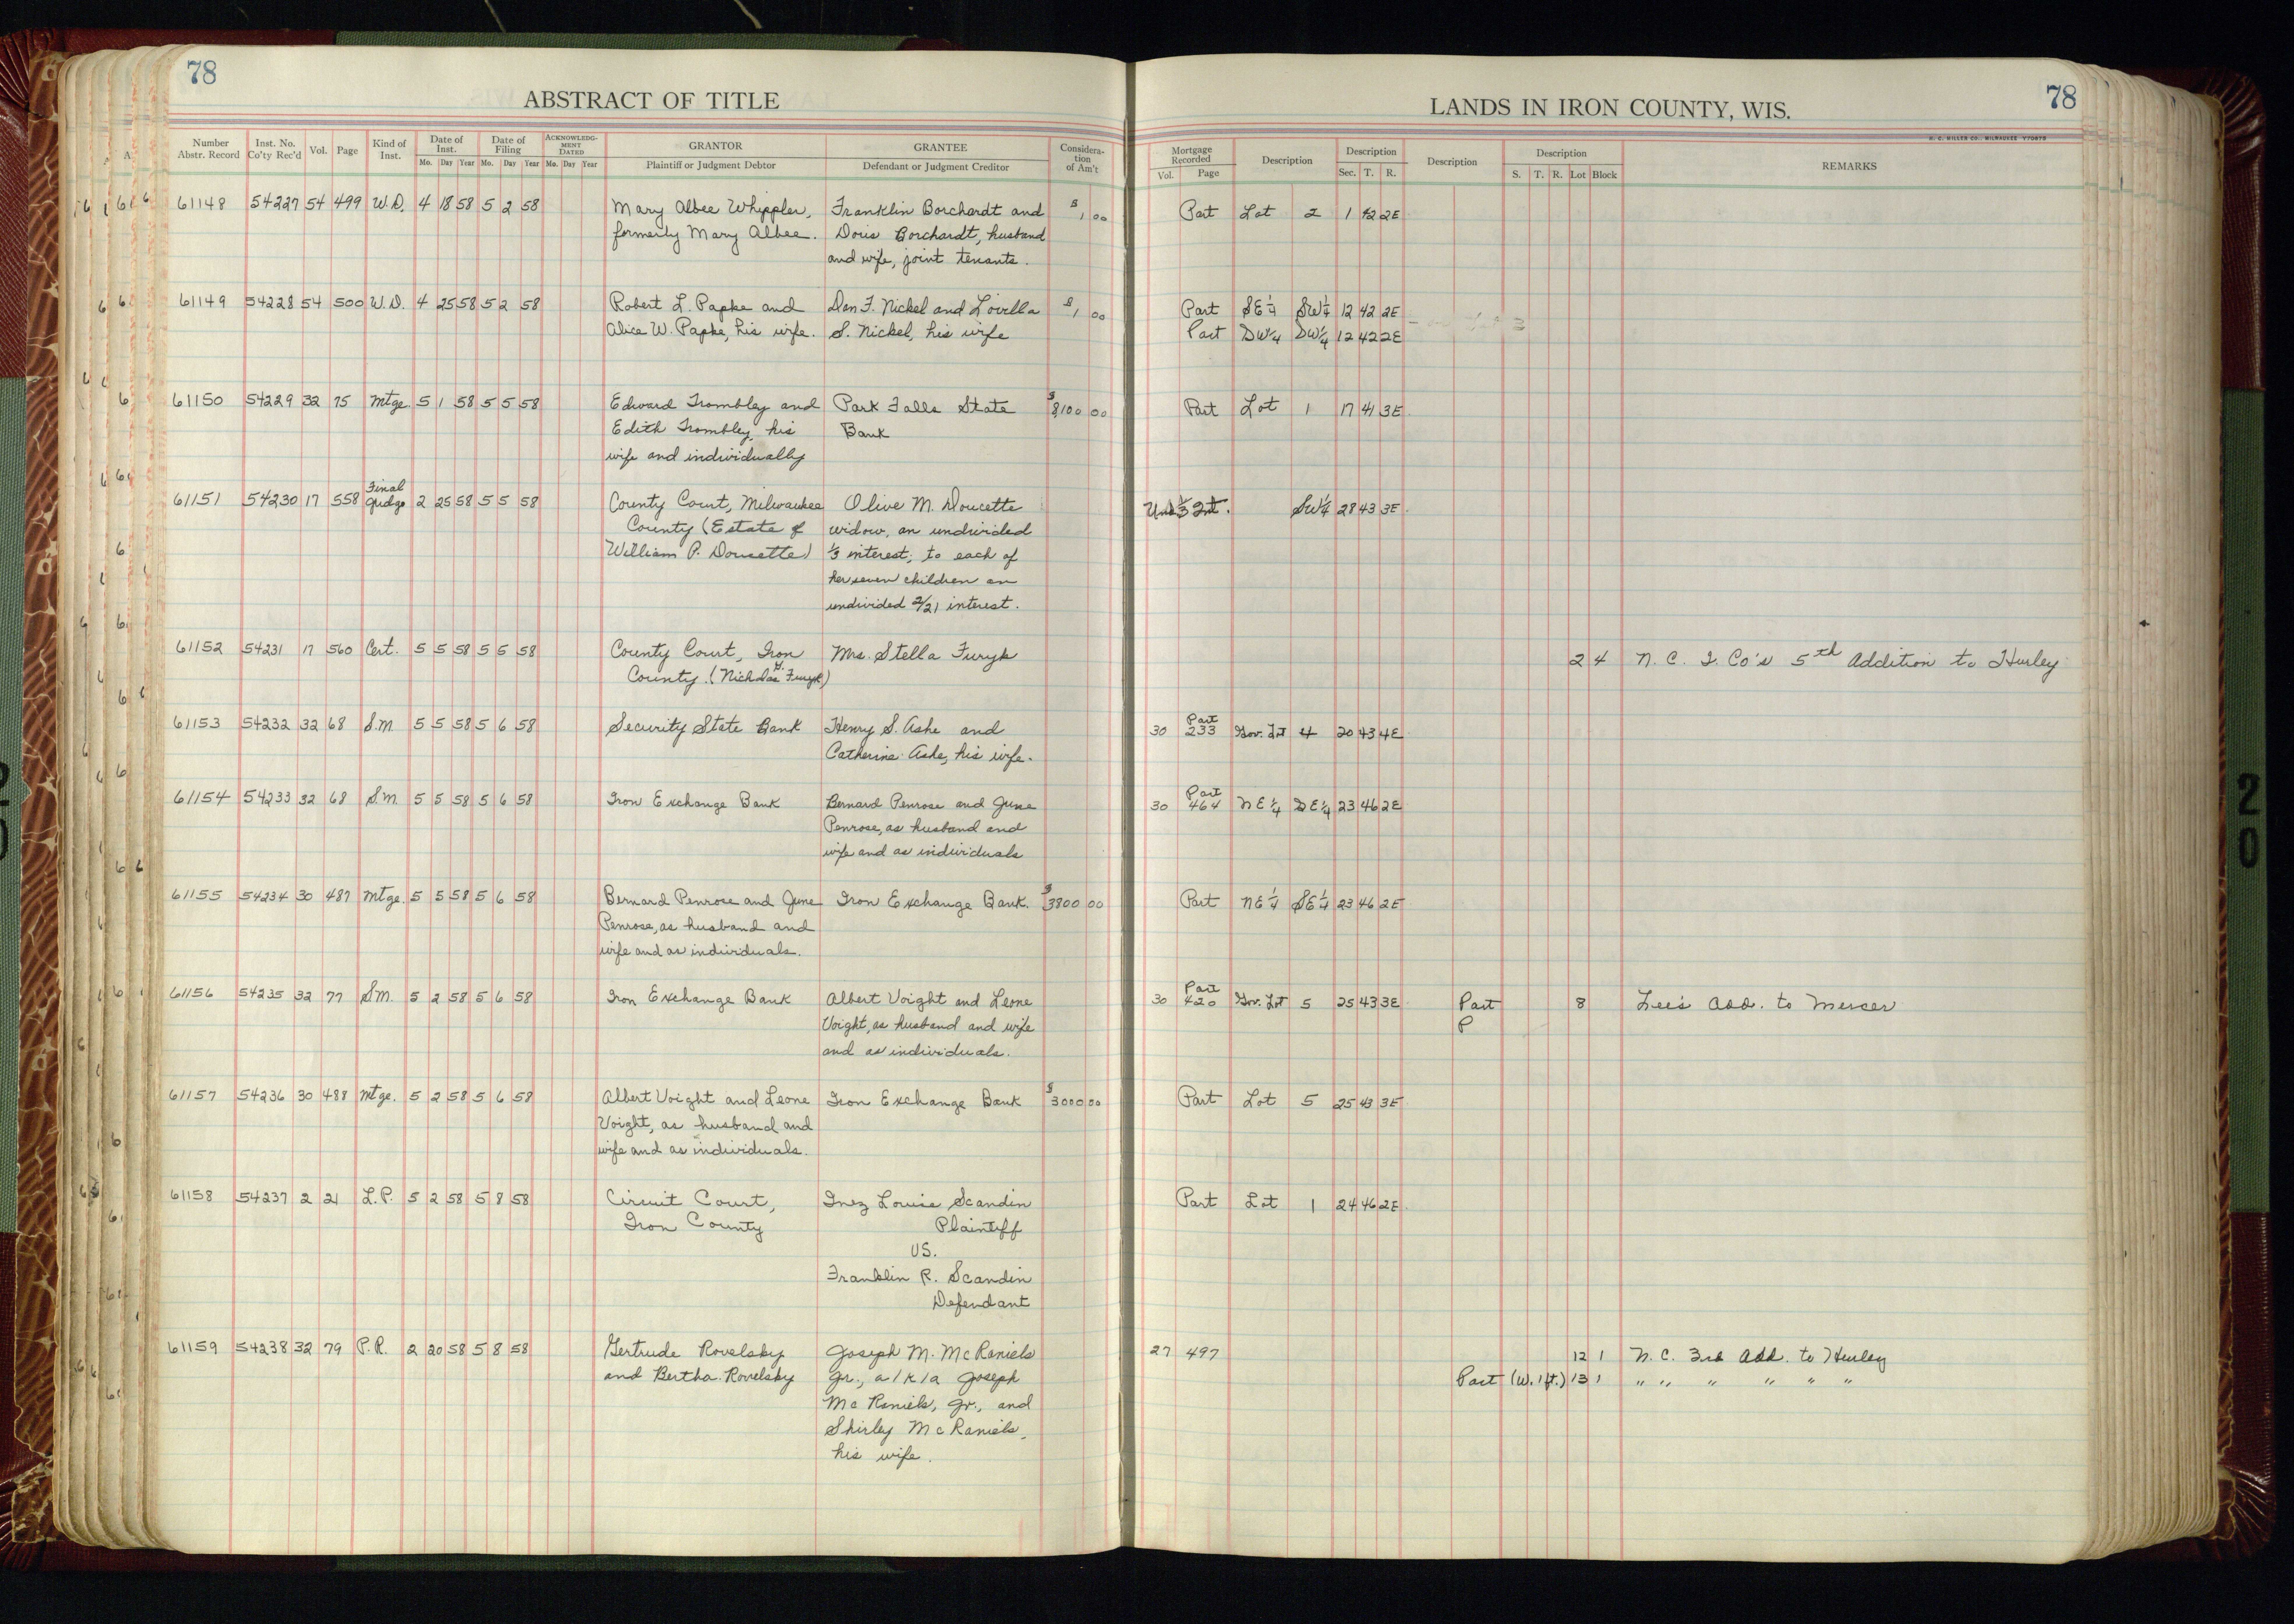 78
ABSTRACT OF TITLE
Number Abstr. Record | Inst. No. Co'ty Rec'd | Vol. | Page | Kind of Inst. | Date of Inst. Mo. Day Year | Date of Filing Mo. Day Year | ACKNOWLEDGMENT DATED Mo. Day Year | GRANTOR Plaintiff or Judgment Debtor | GRANTEE Defendant or Judgment Creditor | Consideration of Am't
61148 54227 54 499 W.D. 4 18 58 5 2 58 Mary Albee Whippler, Franklin Borchardt and $1 00
formerly Mary Albee. Doris Borchardt, husband
and wife, joint tenants.
61149 54228 54 500 W.D. 4 25 58 5 2 58 Robert L. Papke and Dan F. Nickel and Lovella $1 00
Alice W. Papke, his wife. S. Nickel, his wife
61150 54229 32 75 Mtge. 5 1 58 5 5 58 Edward Trombley and Park Falls State $8,100 00
Edith Trombley, his Bank
wife and individually
61151 54230 17 558 Final Judge 2 25 58 5 5 58 County Court, Milwaukee Olive M. Doucette
County (Estate of widow, an undivided
William P. Doucette) 1/3 interest; to each of
her seven children an
undivided 2/21 interest.
61152 54231 17 560 Cert. 5 5 58 5 5 58 County Court, Iron Mrs. Stella Furyk
County. (Nicholas Furyk)
61153 54232 32 68 S.M. 5 5 58 5 6 58 Security State Bank Henry S. Ashe and
Catherine Ashe, his wife.
61154 54233 32 68 S.M. 5 5 58 5 6 58 Iron Exchange Bank Bernard Penrose and June
Penrose, as husband and
wife and as individuals
61155 54234 30 487 Mtge. 5 5 58 5 6 58 Bernard Penrose and June Iron Exchange Bank. $3800 00
Penrose, as husband and
wife and as individuals.
61156 54235 32 77 S.M. 5 2 58 5 6 58 Iron Exchange Bank Albert Voight and Leone
Voight, as husband and wife
and as individuals.
61157 54236 30 488 Mtge. 5 2 58 5 6 58 Albert Voight and Leone Iron Exchange Bank $3000 00
Voight, as husband and
wife and as individuals.
61158 54237 2 21 L.P. 5 2 58 5 8 58 Circuit Court, Inez Louise Scandin
Iron County Plaintiff
VS.
Franklin R. Scandin
Defendant
61159 54238 32 79 P.R. 2 20 58 5 8 58 Gertrude Rovelsky Joseph M. McRaniels
and Bertha Rovelsky Jr., a/k/a Joseph
McRaniels, Jr., and
Shirley McRaniels,
his wife.
78
LANDS IN IRON COUNTY, WIS.
H. C. MILLER CO., MILWAUKEE Y70878
Mortgage Recorded Vol. Page | Description | Description Sec. T. R. | Description | Description S. T. R. Lot Block | REMARKS
Part Lot 2 1 42 2E
Part SE 1/4 SW 1/4 12 42 2E
Part SW 1/4 SW 1/4 12 42 2E
Part Lot 1 17 41 3E
Und. 1/3 Int. SW 1/4 28 43 3E
2 4 N. C. I. Co's 5th Addition to Hurley
30 Part 233 Gov. Lot 4 20 43 4E
30 Part 464 NE 1/4 SE 1/4 23 46 2E
Part NE 1/4 SE 1/4 23 46 2E
30 Part 420 Gov. Lot 5 25 43 3E Part 8 Lee's Add. to Mercer
P
Part Lot 5 25 43 3E
Part Lot 1 24 46 2E
27 497 12 1 N. C. 3rd Add. to Hurley
Part (W. 1 ft.) 13 1 " " " " " "
20